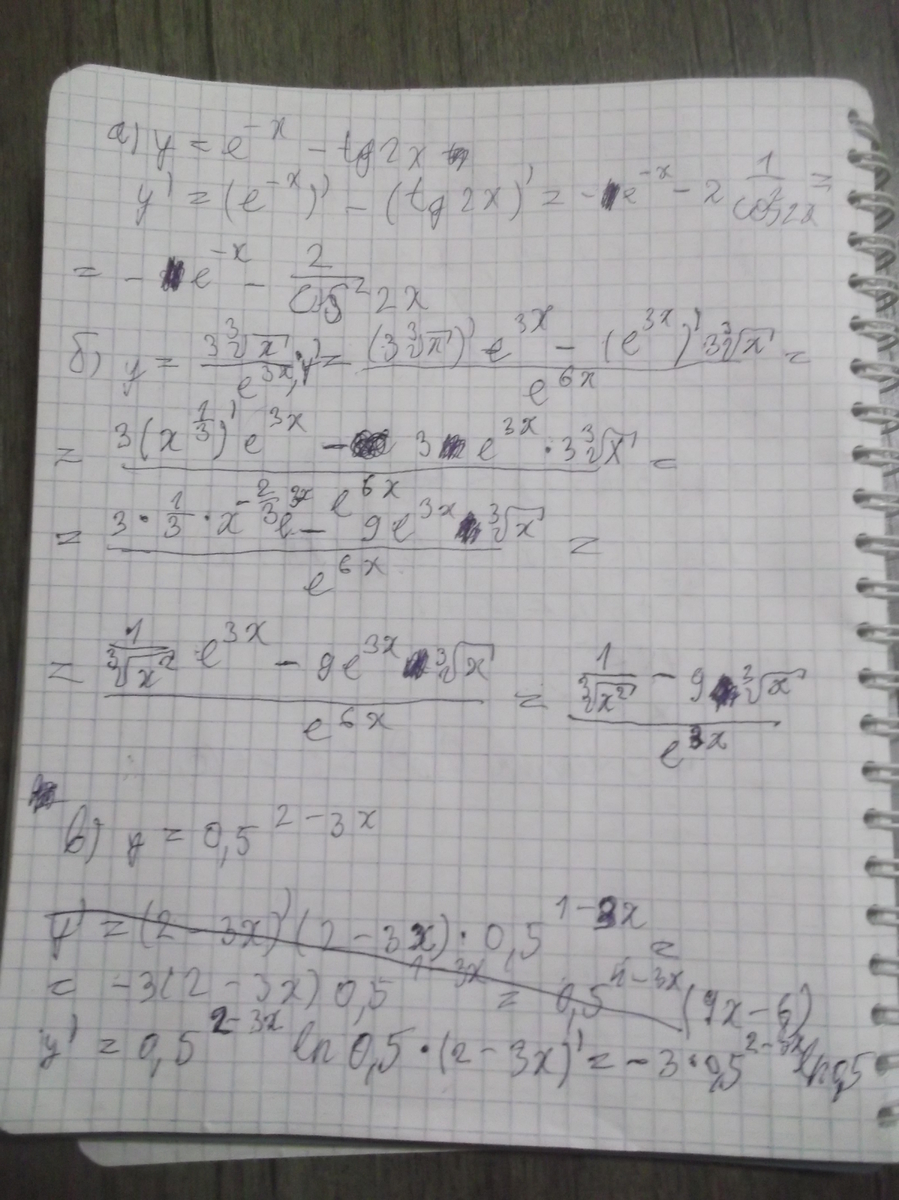 а) y = e^{-x} - tg 2x
y' = (e^{-x})' - (tg 2x)' = - e^{-x} - 2 \frac{1}{cos^2 2x} =
= - e^{-x} - \frac{2}{cos^2 2x}
б) y = \frac{3\sqrt[3]{x}}{e^{3x}}, y' = \frac{(3\sqrt[3]{x})' e^{3x} - (e^{3x})' 3\sqrt[3]{x}}{e^{6x}} =
= \frac{3(x^{\frac{1}{3}})' e^{3x} - 3e^{3x} · 3\sqrt[3]{x}}{e^{6x}} =
= \frac{3 · \frac{1}{3} · x^{-\frac{2}{3}} e^{3x} - 9e^{3x} \sqrt[3]{x}}{e^{6x}} =
= \frac{\frac{1}{\sqrt[3]{x^2}} · e^{3x} - 9e^{3x} \sqrt[3]{x}}{e^{6x}} = \frac{\frac{1}{\sqrt[3]{x^2}} - 9\sqrt[3]{x}}{e^{3x}}
в) y = 0,5^{2-3x}
y' = (2-3x)'(2-3x) · 0,5^{1-3x} =
= -3(2-3x) 0,5^{1-3x} = 0,5^{1-3x} (9x-6)
y' = 0,5^{2-3x} ln 0,5 · (2-3x)' = -3 · 0,5^{2-3x} ln 0,5